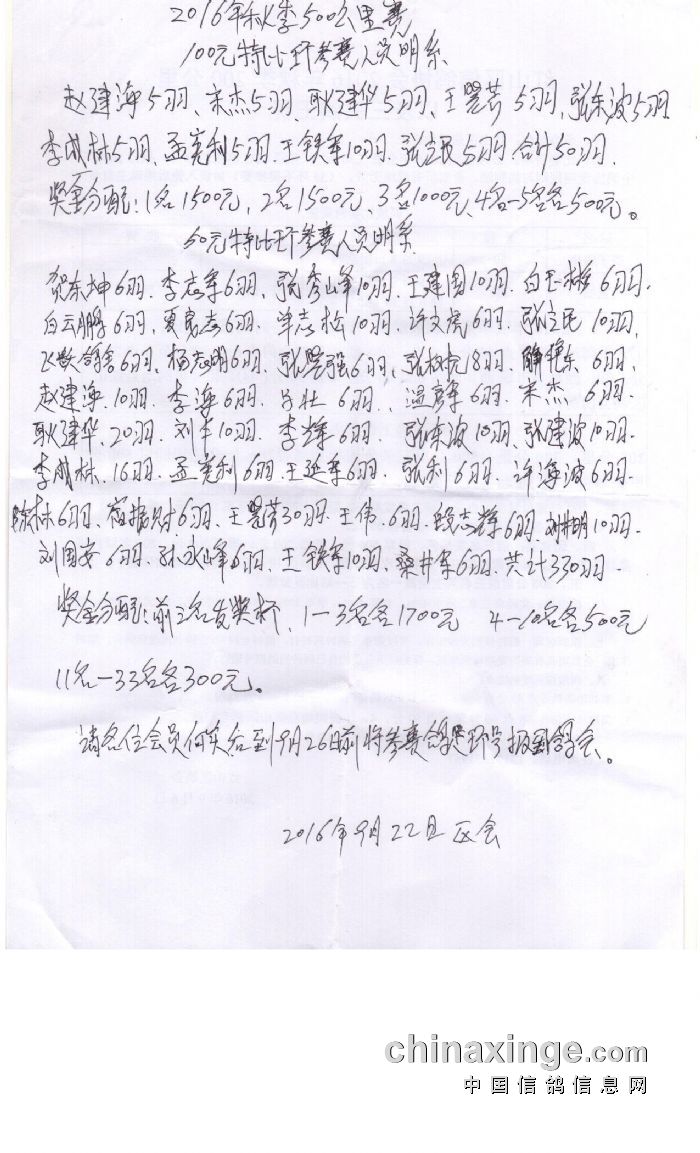 2016年秋季500公里赛
100元特比环参赛人员明系
赵建海5羽、宋杰5羽、耿建华5羽、王瞾芳5羽、张东波5羽
李成林5羽、孟宪利5羽、王铁军10羽、张立民5羽、合计50羽、
奖金分配:1名1500元,2名1500元、3名1000元、4名-5名各500元。
50元特比环参赛人员明系
贺东坤6羽、李志军6羽、张秀峰10羽、王建国10羽、白玉彬6羽、
白云鹏6羽、夏良志6羽、毕志松10羽、许文虎6羽、张立民10羽、
飞歌鸽舍6羽、杨志明6羽、张瞾强6羽、张树虎18羽、解 东6羽、
赵建海、10羽、李海6羽、 壮6羽、温 军6羽、宋杰6羽、
耿建华、20羽、刘丰10羽、李辉6羽、张东波10羽、张建波10羽、
李成林、16羽、孟宪利6羽、王延军6羽、张利6羽、许海波6羽、
陈林6羽、 振财6羽、王瞾芳30羽、王伟、6羽、段志辉6羽、刘 明10羽、
刘国安6羽、孙永峰6羽、王铁军10羽、桑井军6羽、共计330羽、
奖金分配:前三名发奖杯、1-3名各1700元 4-10名各500元
11名-33名各300元。
请各位会员 实后到9月26日前将参赛鸽足环号报到鸽会。
2016年9月22日 区会
chinaxinge.com
中国信鸽信息网